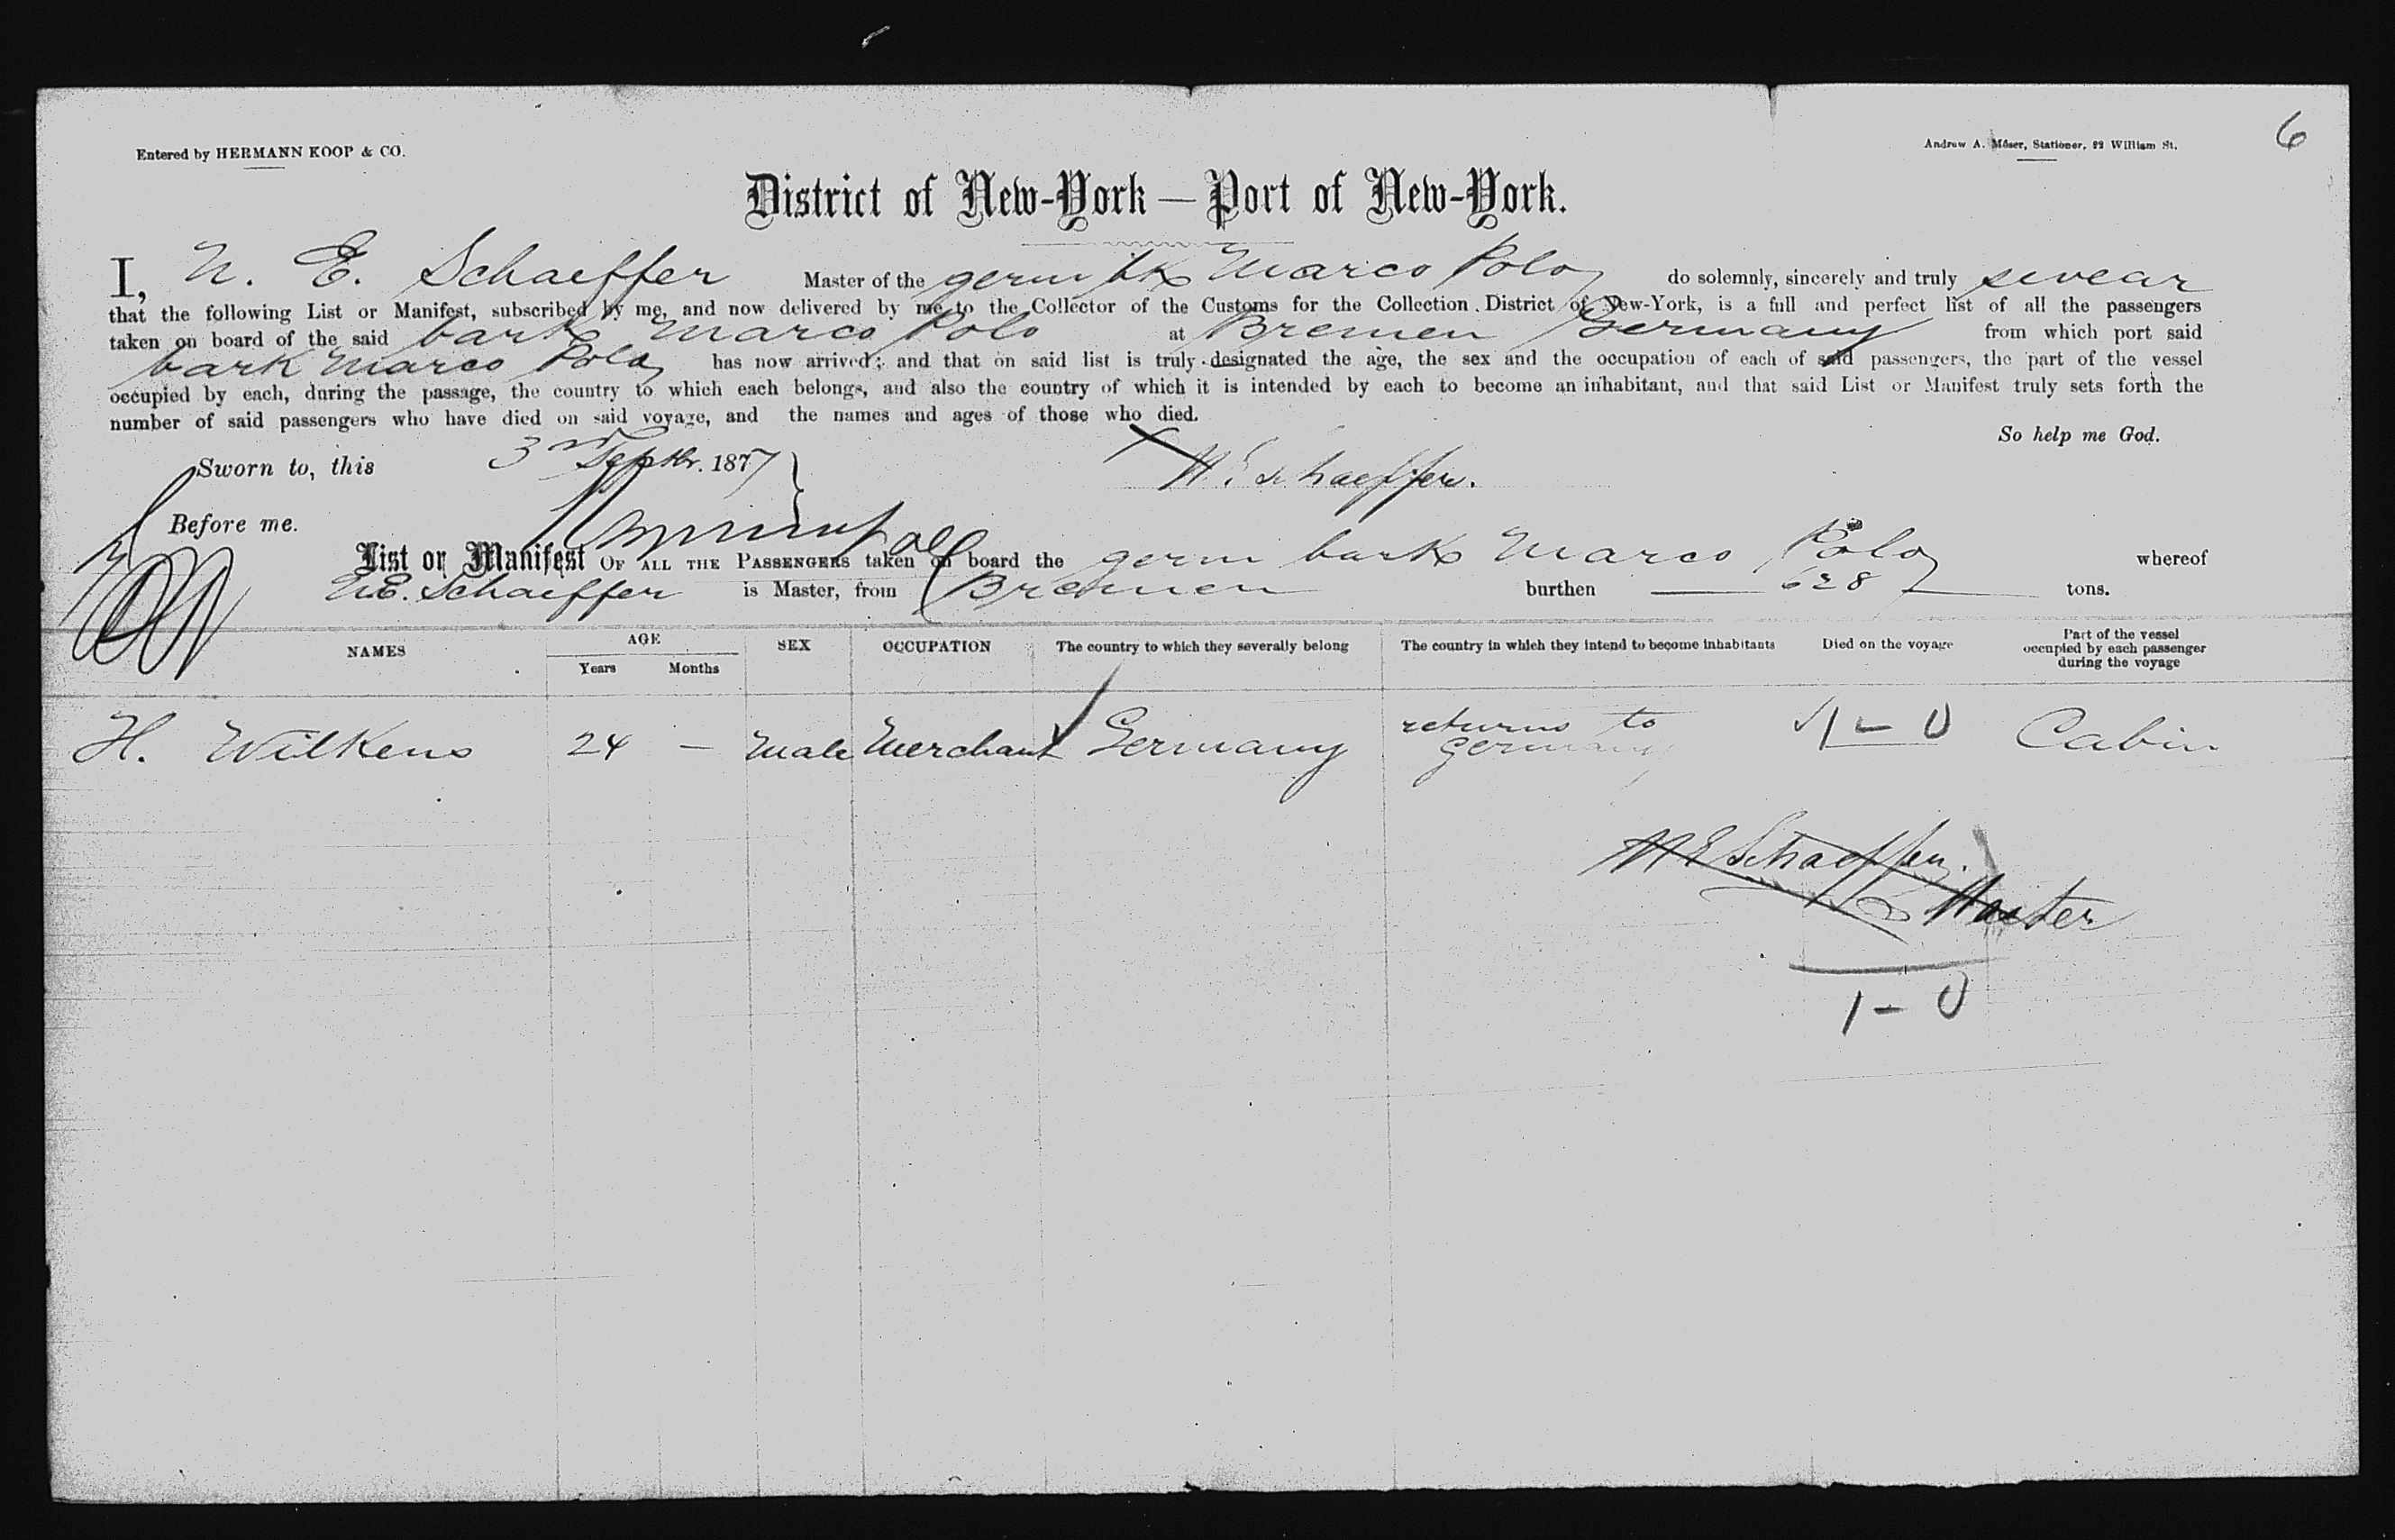 6
Entered by HERMANN KOOP & CO.
Andrew A. Möser, Stationer, 22 William St.
District of New-York — Port of New-York.
I, N. E. Schaeffer Master of the germ bk Marco Polo do solemnly, sincerely and truly swear
that the following List or Manifest, subscribed by me, and now delivered by me to the Collector of the Customs for the Collection District of New-York, is a full and perfect list of all the passengers
taken on board of the said bark Marco Polo at Bremen Germany from which port said
bark Marco Polo has now arrived; and that on said list is truly designated the age, the sex and the occupation of each of said passengers, the part of the vessel
occupied by each, during the passage, the country to which each belongs, and also the country of which it is intended by each to become an inhabitant, and that said List or Manifest truly sets forth the
number of said passengers who have died on said voyage, and the names and ages of those who died.
So help me God.
Sworn to, this 3rd Septbr. 1877
N. E. Schaeffer.
Before me.
List or Manifest OF ALL THE PASSENGERS taken on board the germ bark Marco Polo whereof
N.E. Schaeffer is Master, from Bremen burthen 628 tons.
NAMES AGE Years Months SEX OCCUPATION The country to which they severally belong The country in which they intend to become inhabitants Died on the voyage Part of the vessel occupied by each passenger during the voyage
H. Wilkens 24 — Male Merchant Germany returns to Germany 1 - 0 Cabin
N E Schaeffer.
Master
1 - 0